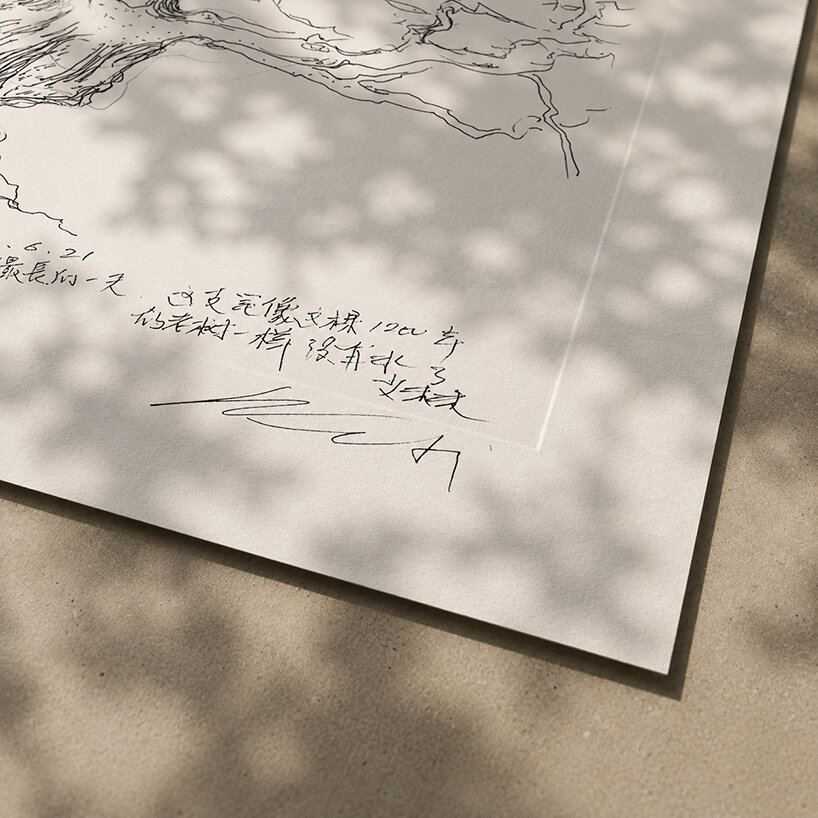 .6.21
最長的一天
这支笔像这棵1200年
的老树一样 没有水了
艾未未